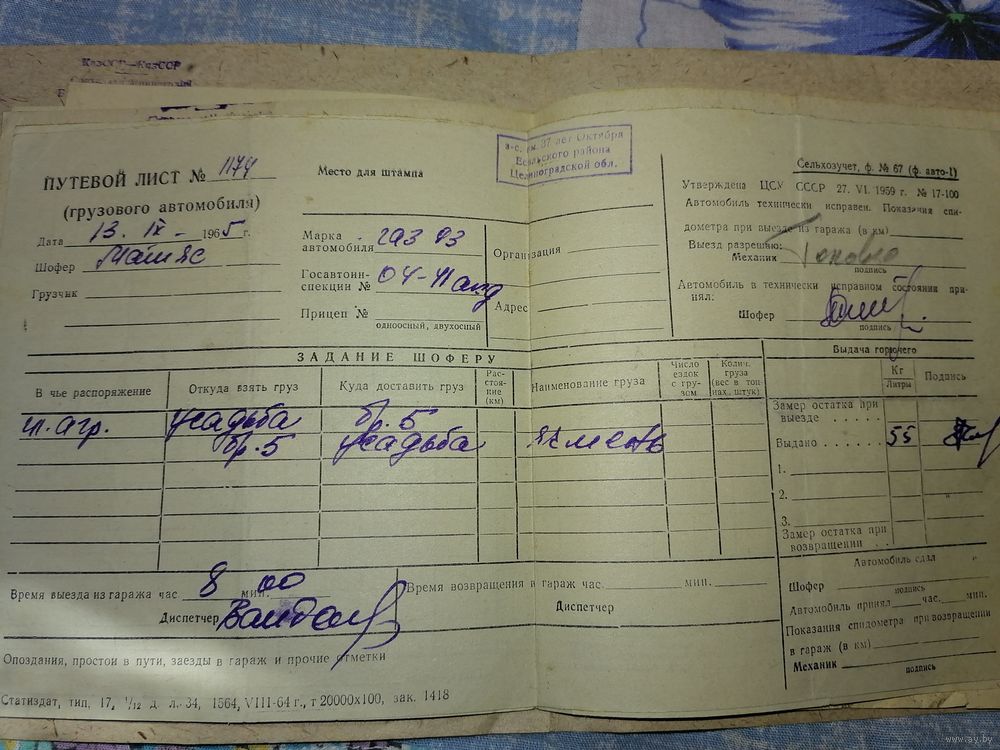 КазССР—КазССР
з-с. им. 37 лет Октября
Есильского района
Целиноградской обл.
ПУТЕВОЙ ЛИСТ № 1174
(грузового автомобиля)
Дата 13. IX - 1965 г.
Шофер Матяс
Грузчик
Место для штампа
Марка автомобиля газ 93
Госавтоин-
спекции № 04-11 акд
Прицеп №
одноосный, двухосный
Организация
Адрес
Сельхозучет, ф. № 67 (ф. авто-1)
Утверждена ЦСУ СССР 27. VI. 1959 г. № 17-100
Автомобиль технически исправен. Показания спи-
дометра при выезде из гаража (в км)
Выезд разрешаю:
Механик
подпись
Автомобиль в технически исправном состоянии при-
нял:
Шофер
подпись
ЗАДАНИЕ ШОФЕРУ
В чье распоряжение
Откуда взять груз
Куда доставить груз
Рас-
стоя-
ние
(км)
Наименование груза
Число
ездок
с гру-
зом
Колич.
груза
(вес в тон-
нах, штук)
гл. агр. усадьба бр. 5
бр. 5 усадьба ячмень
Выдача горючего
Кг
Литры
Подпись
Замер остатка при
выезде . . . . . .
Выдано . . . . . 55
1.
2.
3.
Замер остатка при
возвращении . .
Время выезда из гаража час. 8 мин. 00
Диспетчер
Время возвращения в гараж час. мин.
Диспетчер
Автомобиль сдал
Шофер
подпись
Автомобиль принял час. мин.
Показания спидометра при возвращении
в гараж (в км)
Механик
подпись
Опоздания, простои в пути, заезды в гараж и прочие отметки
Статиздат, тип. 17, 1/12 д. л.-34, 1564, VIII-64 г., т 20000х100, зак. 1418
www.ay.by